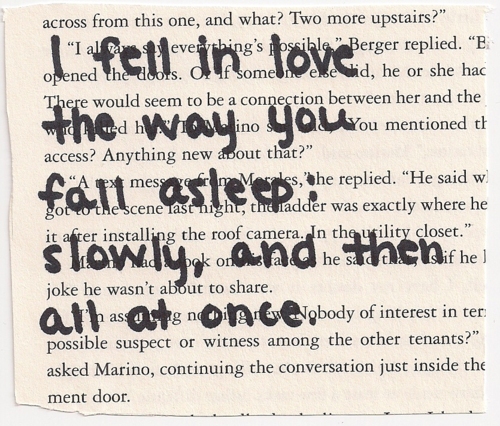 across from this one, and what? Two more upstairs?”
“I always say everything’s possible,” Berger replied.
I fell in love
opened the doors. Or if someone else did, he or she
There would seem to be a connection between her and the
the way you
who killed Marino You mentioned
access? Anything new about that?”
“A text message from Morales,” he replied. “He said
fall asleep:
got to the scene last night, the ladder was exactly where he
it after installing the roof camera. In the utility closet.”
slowly, and then
Marino had look on his face as he said that, as if he
joke he wasn’t about to share.
all at once.
“I’m assuming nothing new. Nobody of interest in
possible suspect or witness among the other tenants?”
asked Marino, continuing the conversation just inside the
ment door.